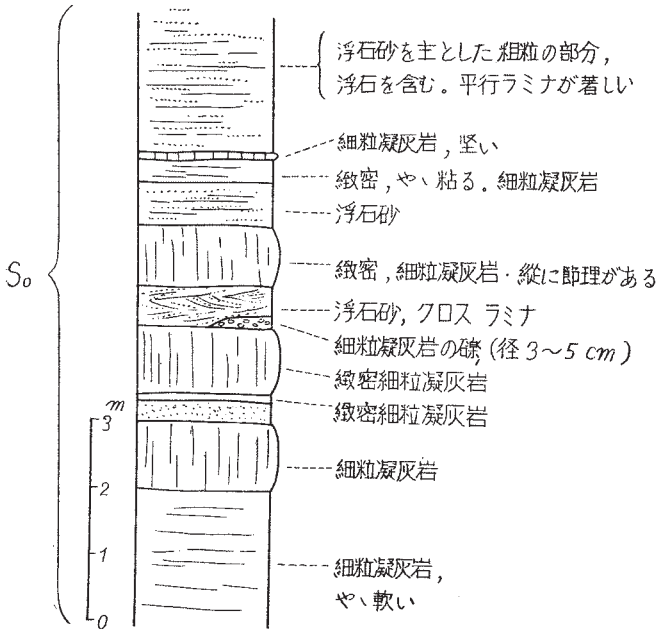 浮石砂を主とした粗粒の部分,
浮石を含む。平行ラミナが著しい
細粒凝灰岩, 堅い
緻密, やゝ粘る. 細粒凝灰岩
浮石砂
S₀
緻密, 細粒凝灰岩・縦に節理がある
浮石砂, クロス ラミナ
細粒凝灰岩の礫, (径 3~5 cm)
緻密細粒凝灰岩
m
緻密細粒凝灰岩
3
細粒凝灰岩
2
1
細粒凝灰岩,
やゝ軟い
0